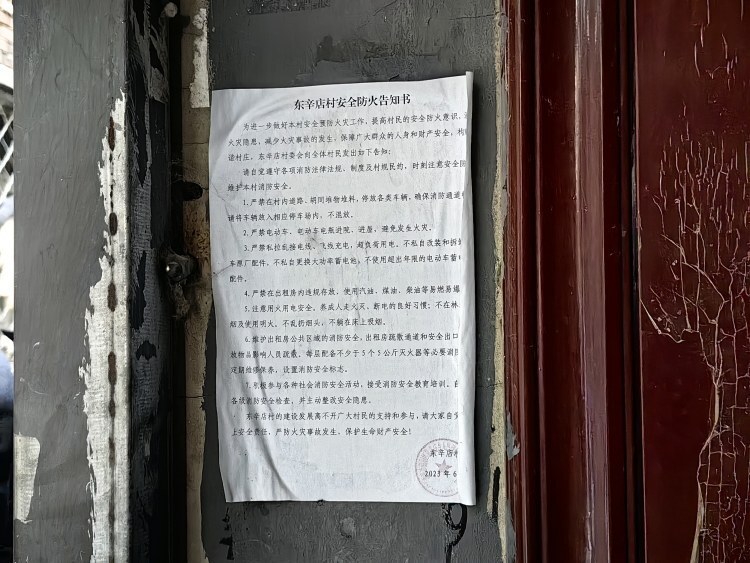 东辛店村安全防火告知书
为进一步做好本村安全预防火灾工作，提高村民的安全防火意识，
火灾隐患，减少火灾事故的发生，保障广大群众的人身和财产安全，构
谐村庄，东辛店村委会向全体村民发出如下告知：
请自觉遵守各项消防法律法规、制度及村规民约，时刻注意安全防
维护本村消防安全。
1.严禁在村内道路、胡同堆物堆料，停放各类车辆，确保消防通道
请将车辆放入相应停车场内，不混放。
2.严禁电动车、电动车电瓶进院、进屋，避免发生火灾。
3.严禁私拉乱接电线、飞线充电，超负荷用电，不私自改装和拆
车原厂配件，不私自更换大功率蓄电池，不使用超出年限的电动车蓄
配件。
4.严禁在出租房内违规存放、使用汽油、煤油、柴油等易燃易爆
5.注意用火用电安全，养成人走火灭、断电的良好习惯；不在林
烟及使用明火，不乱扔烟头，不躺在床上吸烟。
6.维护出租房公共区域的消防安全，出租房疏散通道和安全出口
放物品影响人员疏散，每层配备不少于5个5公斤灭火器等必要消防
定期维修保养，设置消防安全标志。
7.积极参与各种社会消防安全活动，接受消防安全教育培训，
各级消防安全检查，并主动整改安全隐患。
东辛店村的建设发展离不开广大村民的支持和参与，请大家自觉
上安全责任，严防火灾事故发生，保护生命财产安全！
东辛店村
2023年6